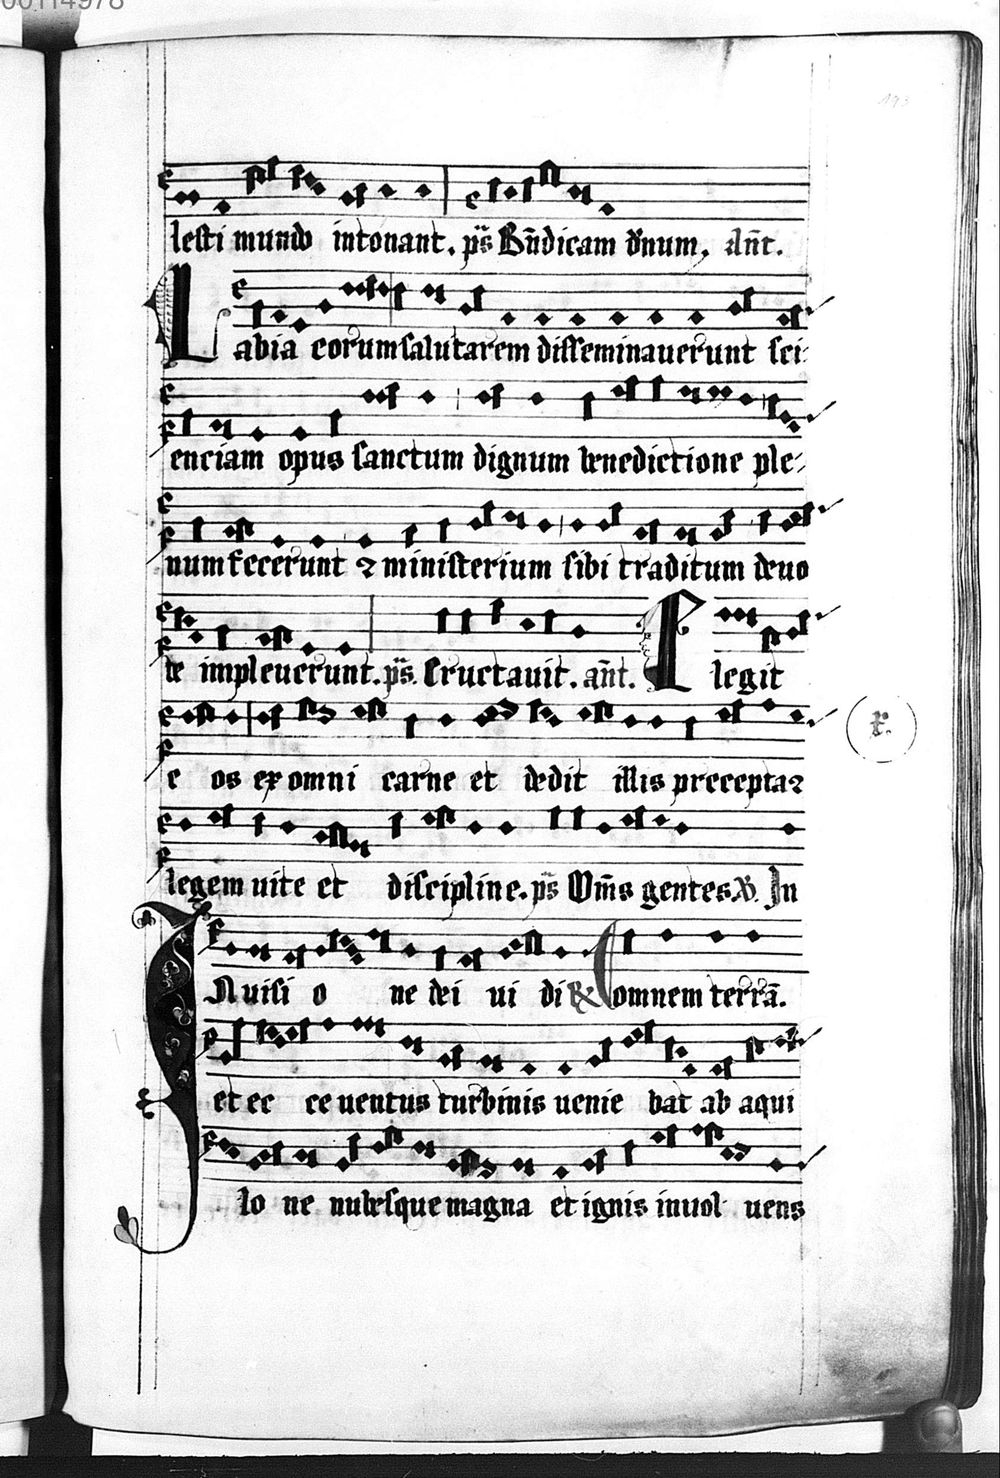 00114978
193
lesti mundo intonant. ps̄ Bn̄dicam dn̄um. An̄t.
Labia eorum salutarem disseminauerunt sci-
enciam opus sanctum dignum benedictione ple-
num fecerunt ⁊ ministerium sibi traditum deuo
te impleuerunt. ps̄. Eructauit. an̄t. Elegit
e os ex omni carne et dedit illis precepta ⁊
legem uite et discipline. ps̄ Om̄s gentes. V. In
IN uisi o ne dei ui di R omnem terrā.
et ec ce uentus turbinis uenie bat ab aqui
lo ne nubesque magna et ignis inuol uens